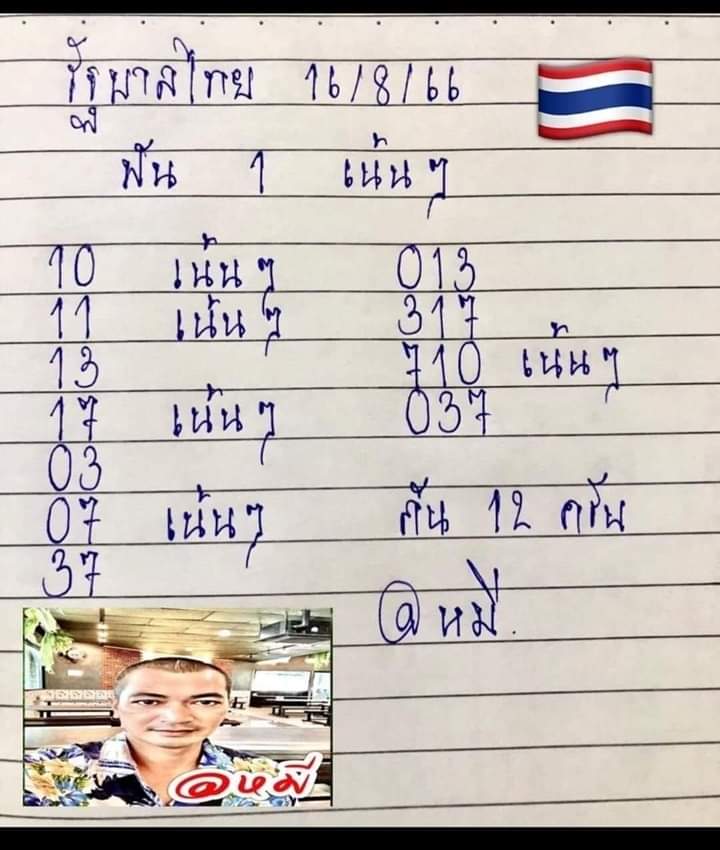 รัฐบาลไทย 16/8/66
ฟัน 1 เน้นๆ
10 เน้นๆ 013
11 เน้นๆ 317
13 710 เน้นๆ
17 เน้นๆ 037
03
07 เน้นๆ กัน 12 ครับ
37
@หมี.
@หมี